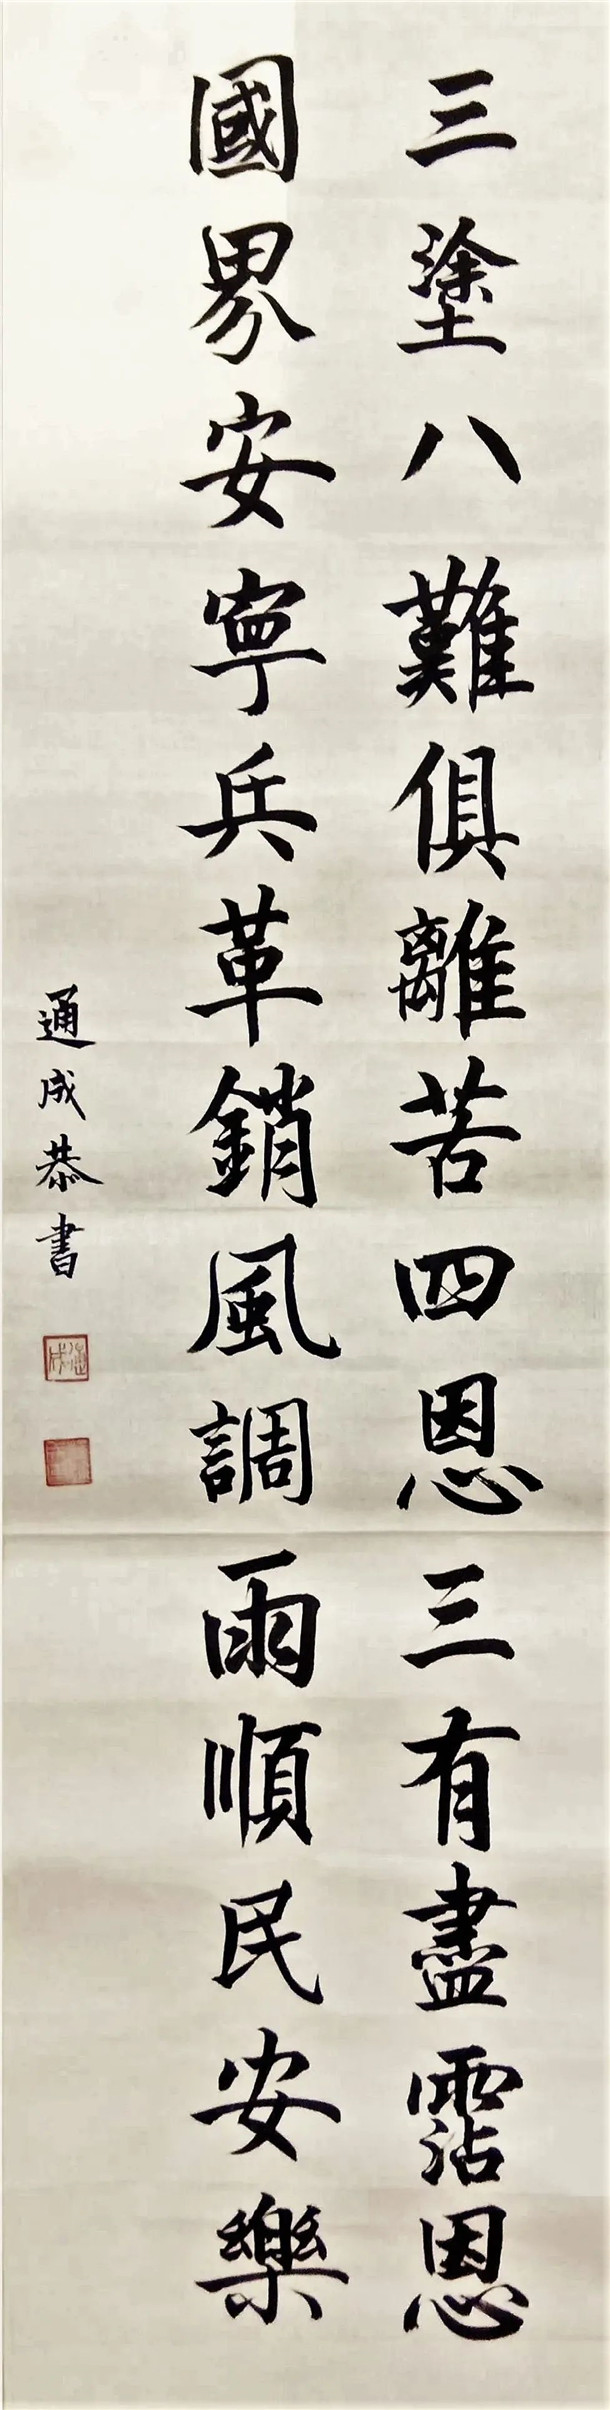 三塗八難俱離苦四恩三有盡霑恩
國界安寧兵革銷風調雨順民安樂
通成恭書